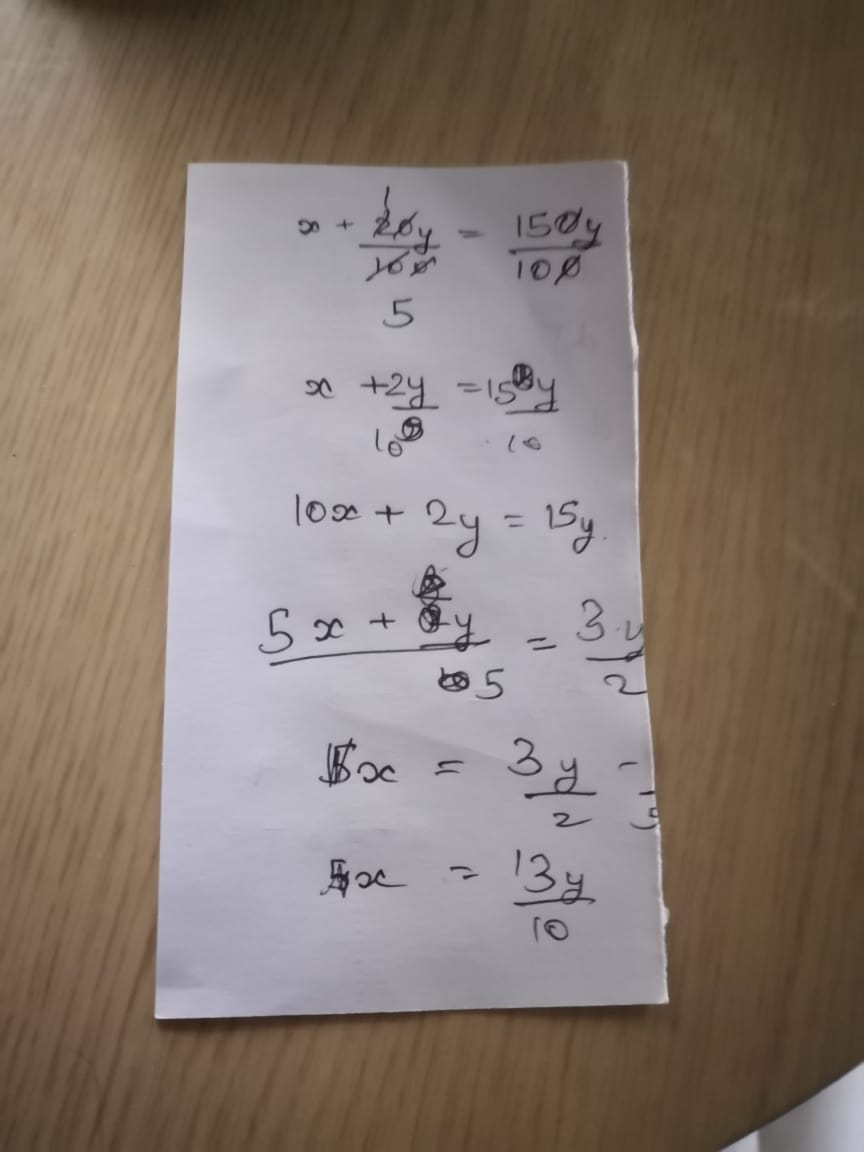 x + 20y/100 = 150y/100
1
5
x + 2y/10 = 15y/10
10x + 2y = 15y.
5x + y/5 = 3y/2
x = 3y/2 -
x = 13y/10